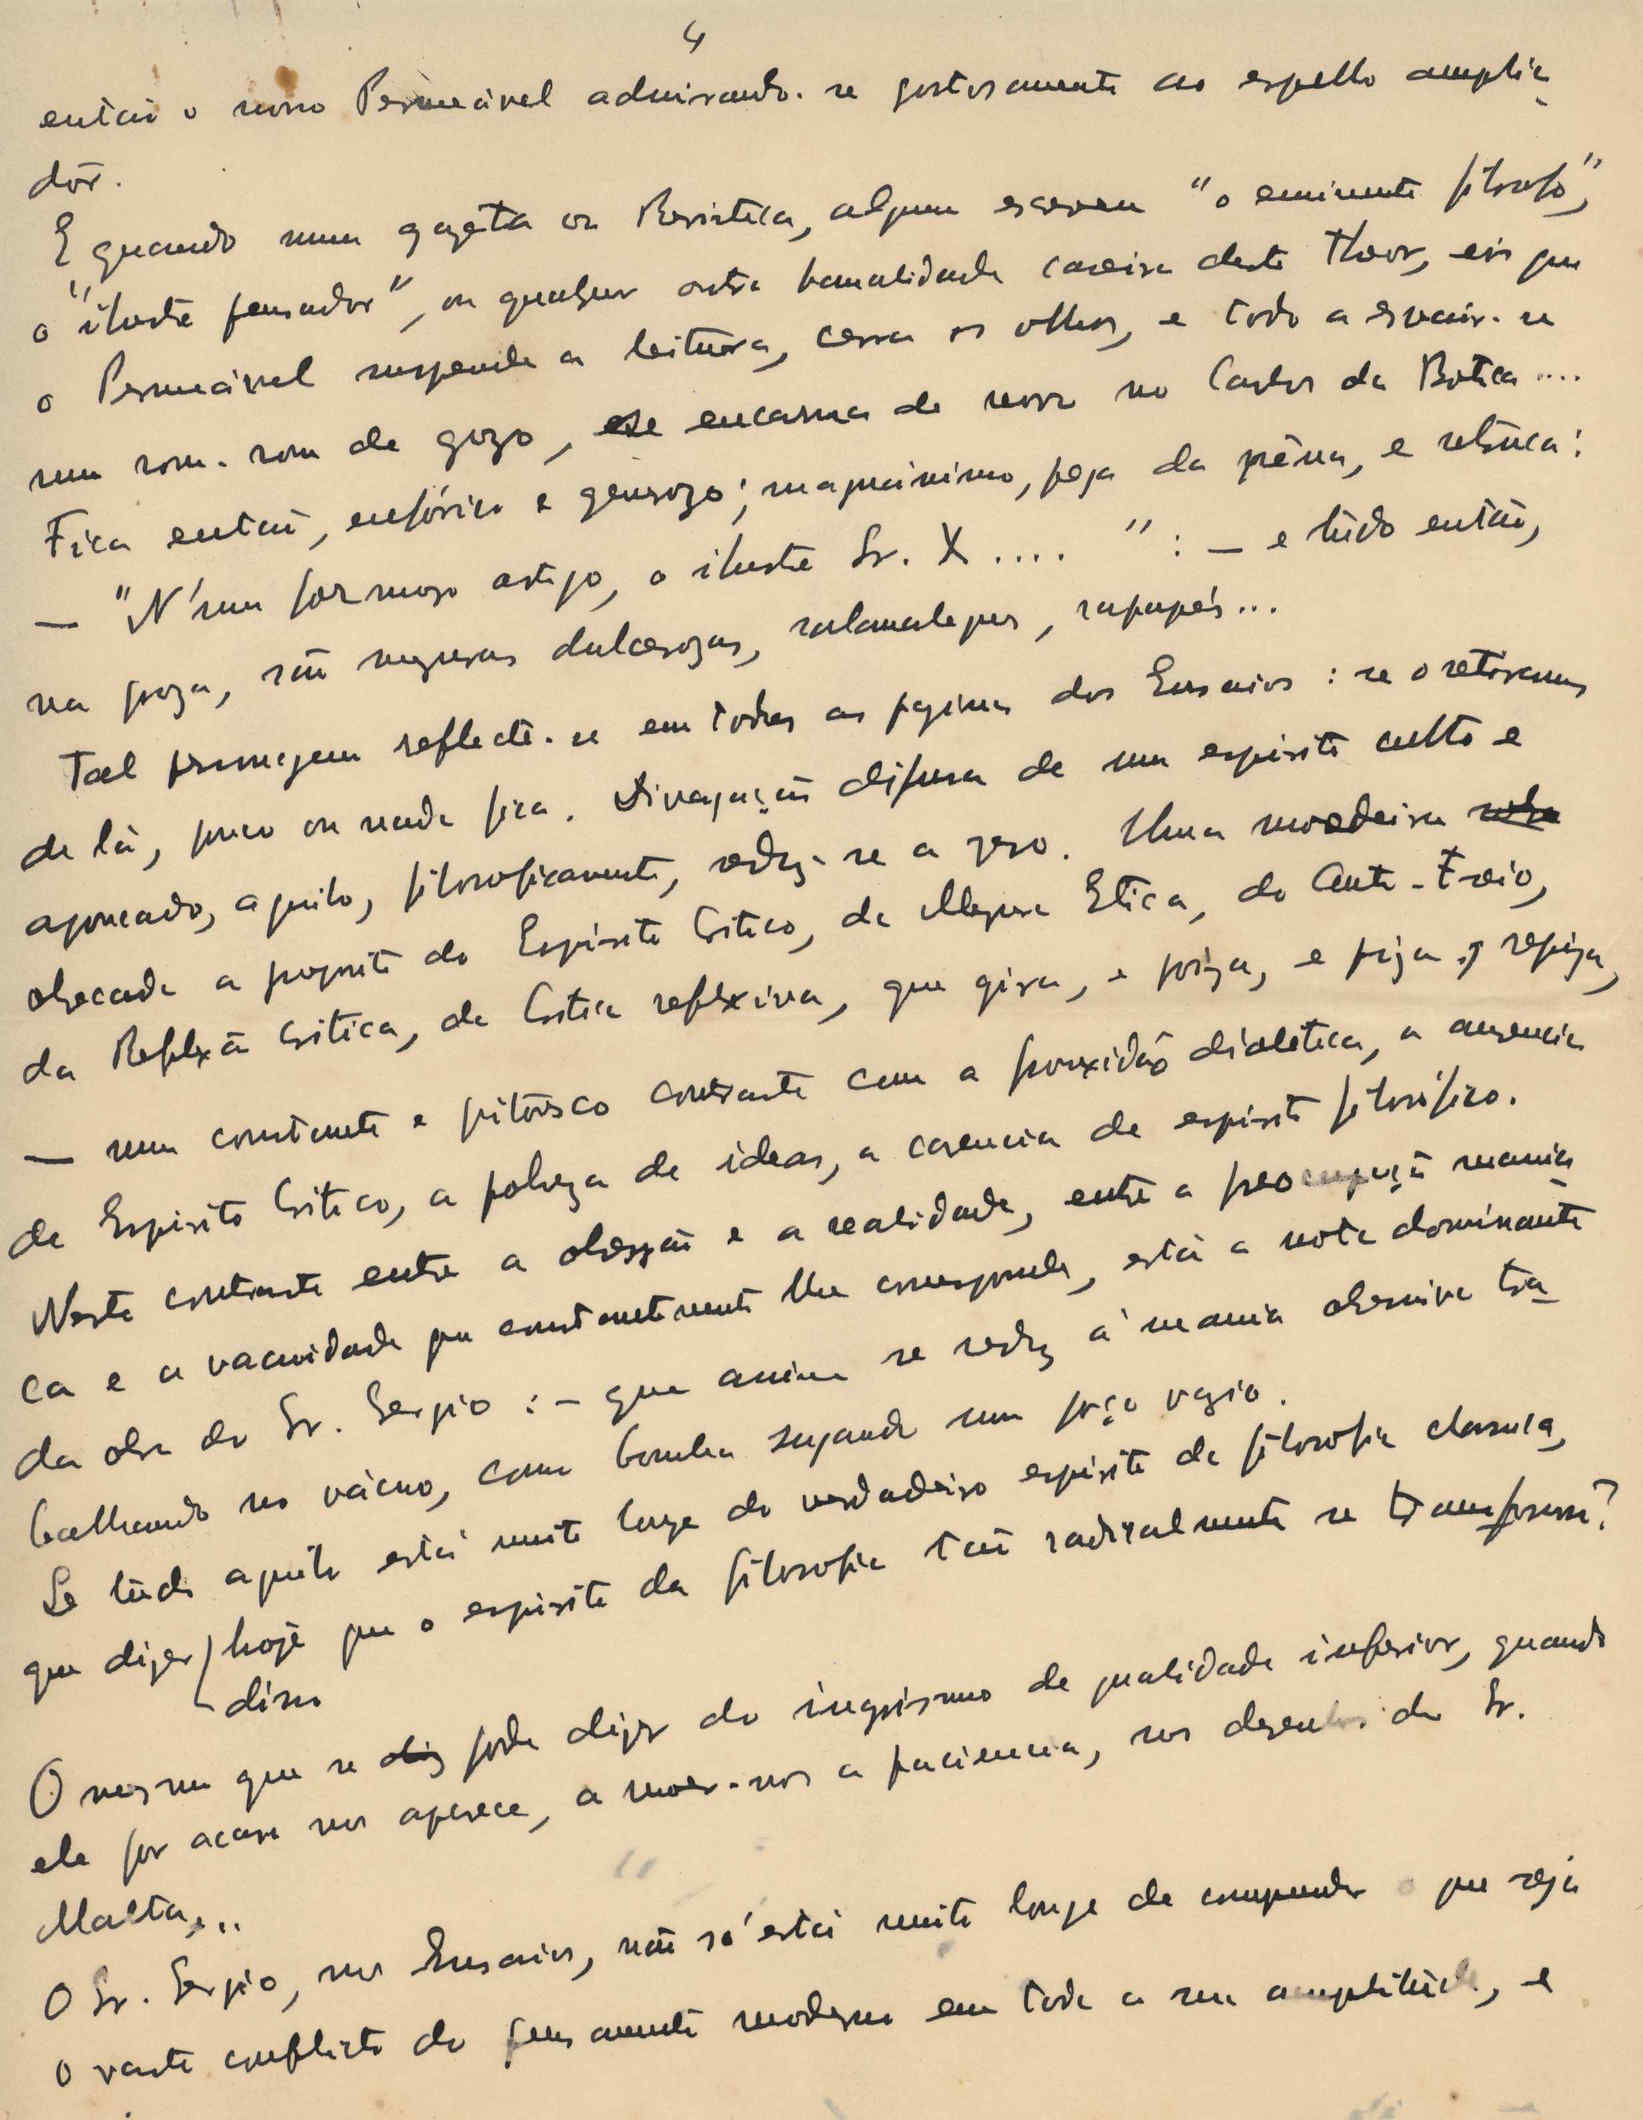 4
então o nosso Permeável admirando-se gostosamente ao espelho amplia_
dôr.
E quando numa gazeta ou Revista, alguem escreveu "o eminente filosofo",
o "ilustre pensador", ou qualquer outra banalidade caseira deste theor, eis que
o Permeável suspende a leitura, cerra os olhos, e todo a esvair-se
num rom-rom de gozo, se encarna de novo no Carlos da Botica....
Fica então, eufórico e generozo; magnanimo, pega da pêna, e retruca:
— "N'um formoso artigo, o ilustre Sr. X .... " : — e tudo então,
na proza, são mezuras dulcerozas, salamaleques, rapapés...
Tal personagem reflecte-se em todas as paginas dos Ensaios : se o retiramos
de lá, pouco ou nada fica. Divagação difusa de um espirito culto e
apoucado, aquilo, filosoficamente, reduz-se a zero. Uma moedeira
obcecada a proposito do Espirito Critico, da Magna Etica, do Ante-Facio,
da Reflexão Critica, da Critica reflexiva, que gira, e poiza, e piza, e repiza,
— num constante e pitoresco contraste com a frouxidão dialetica, a ausencia
de Espirito Critico, a pobreza de ideas, a carencia de espirito filosófico.
Neste contraste entre a obsessão e a realidade, entre a preocupação mania_
ca e a vacuidade que constantemente lhe corresponde, está a nota dominante
da obra do Sr. Sergio : — que assim se reduz á mania obsessiva tra_
balhando no vácuo, como bomba sugando num poço vazio.
Se tudo aquilo está muito longe do verdadeiro espirito da filosofia classica,
que dizer hoje que o espirito da filosofia tão radicalmente se transforma?
disso
O mesmo que se diz pode dizer do snobismo de qualidade inferior, quando
ele por acaso nos aparece, a moer-nos a paciencia, nos desenhos do Sr.
Malta...
O Sr. Sergio, nos Ensaios, não só está muito longe de compreender o que seja
o vasto conflicto do pensamento moderno em toda a sua amplitude, e